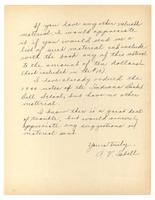 If you have any other usable
material. I would appreciate
it if you would send me a
list of such material and include
with the book any of this extra
to the amount of ten dollars
(Post included in the 10)
I have already ordered the
1940 notes of the Indiana
School, but have no other
material.
I know there is a great deal
of trouble, but would sincerely
appreciate any suggestions or
material sent.
Yours truly